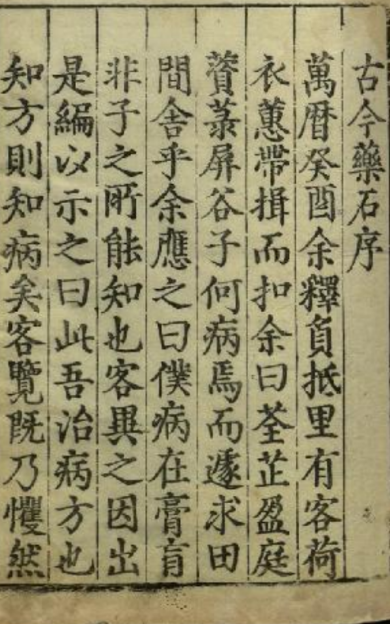 古今藥石序
萬曆癸酉余釋負抵里有客荷
衣蕙帶揖而扣余曰荃芷盈庭
薋菉屏谷子何病焉而遽求田
間舍乎余應之曰僕病在膏肓
非子之所能知也客異之因出
是編以示之曰此吾治病方也
知方則知病矣客覽既乃戄然